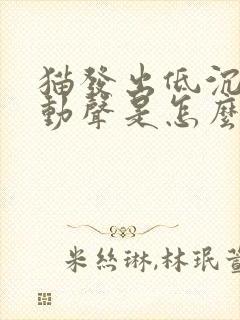 猫發出低沉
動聲是怎麼
米絲琳,林珉萱